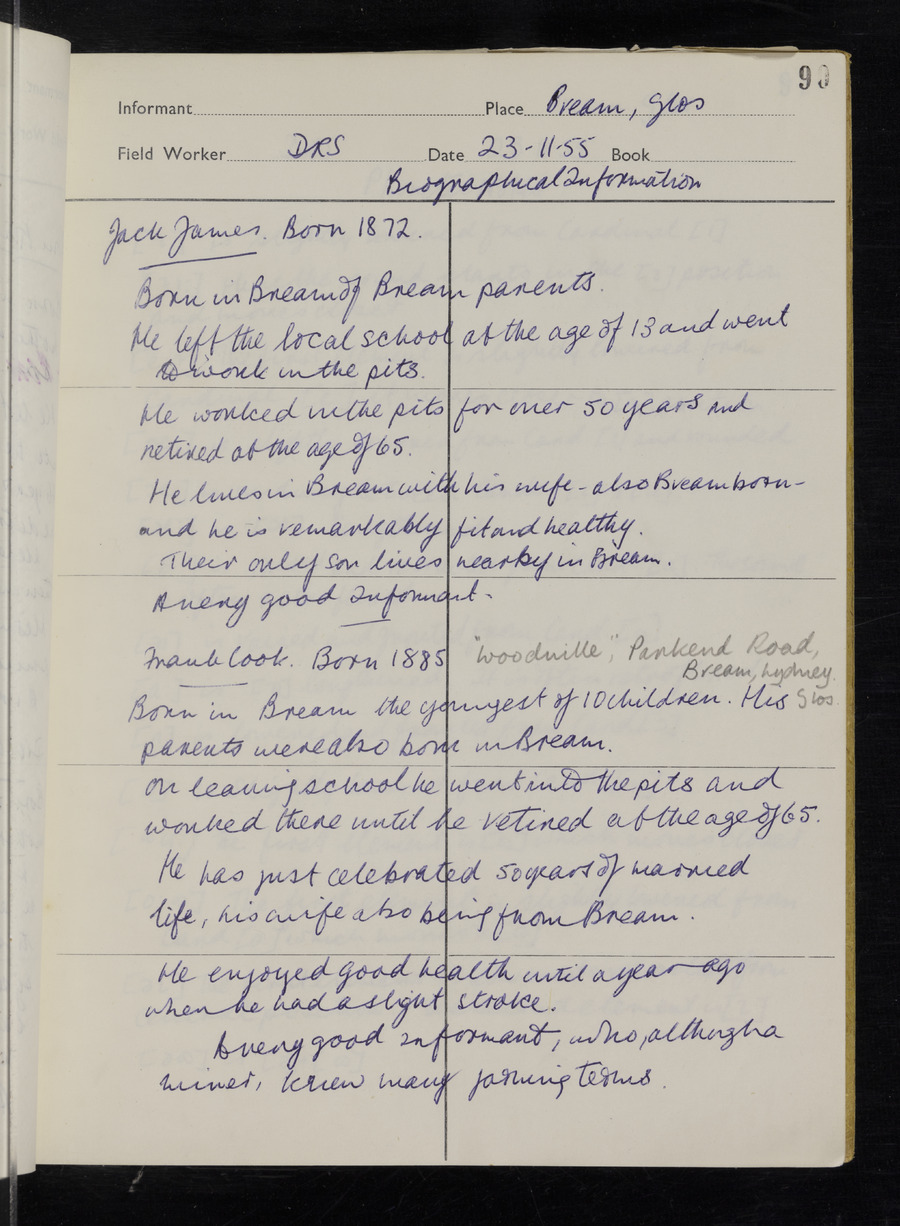 99
Informant Place Bream, Glos
Field Worker DRS Date 23-11-55 Book
Biographical Information
Jack James. Born 1872.
Born in Bream of Bream parents.
He left the local school at the age of 13 and went
to work in the pits.
He worked in the pits for over 50 years and
retired at the age of 65.
He lives in Bream with his wife - also Bream born -
and he is remarkably fit and healthy.
Their only son lives nearby in Bream.
A very good Informant -
Frank Cook. Born 1885 "Woodville", Parkend Road,
Bream, Lydney.
Born in Bream the youngest of 10 children. His Glos.
parents were also born in Bream.
On leaving school he went into the pits and
worked there until he retired at the age of 65.
He has just celebrated 50 years of married
life, his wife also being from Bream.
He enjoyed good health until a year ago
when he had a slight stroke.
A very good informant, who, although a
miner, knew many farming terms.